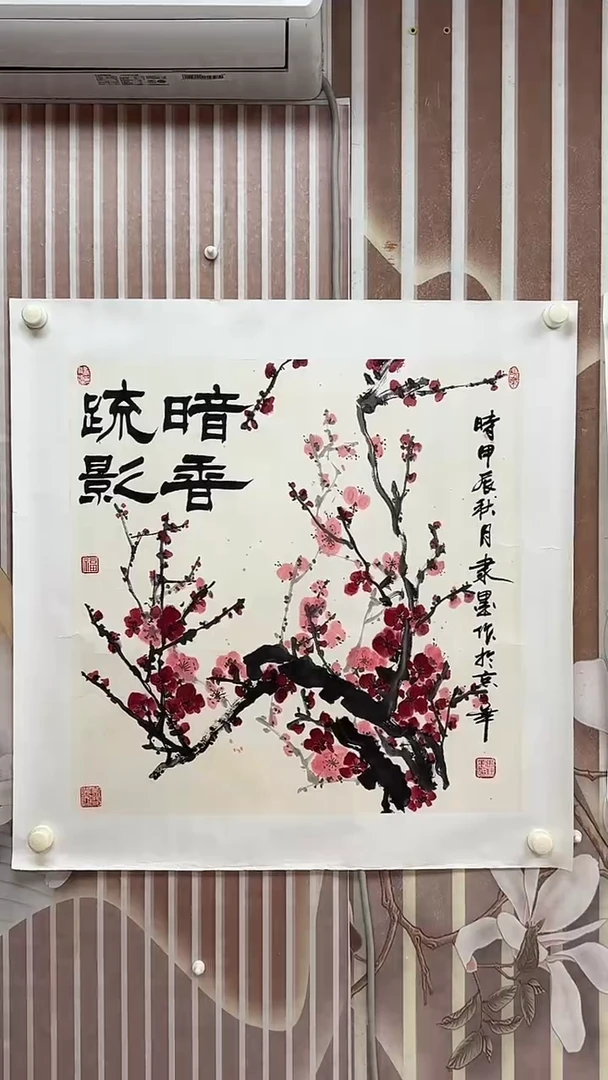 暗香
疏影
時甲辰秋月隶墨作於京華
福